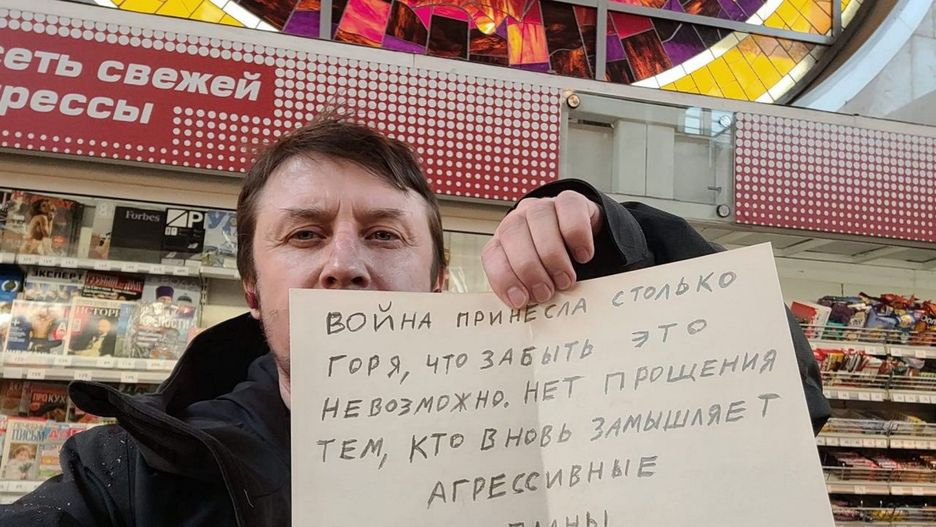 сеть свежей
прессы
Forbes
ЭКСПЕРТ
ВОЙНА ПРИНЕСЛА СТОЛЬКО
ГОРЯ, ЧТО ЗАБЫТЬ ЭТО
НЕВОЗМОЖНО. НЕТ ПРОЩЕНИЯ
ТЕМ, КТО ВНОВЬ ЗАМЫШЛЯЕТ
АГРЕССИВНЫЕ
ПЛАНЫ